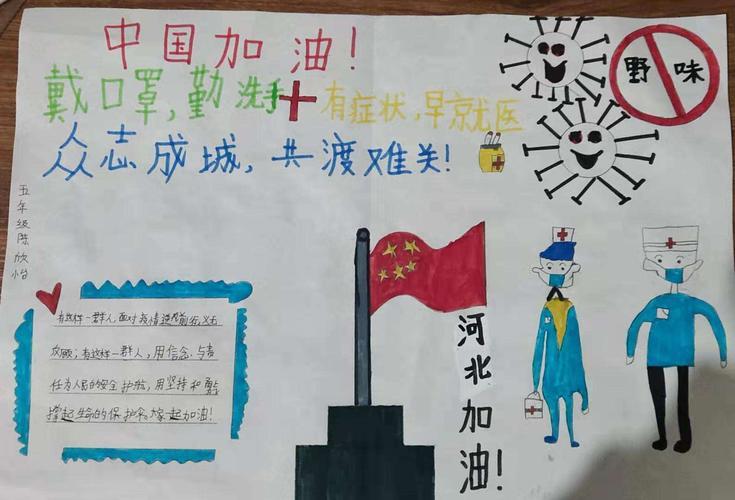 中国加油！
戴口罩，勤洗手
有症状，早京尤医
众志成城，共渡难关！
野味
五年级陈欣怡
有这样一群人，面对疫情逆风前行，义无
反顾；有这样一群人，用信念与责
任为人民的安全护航，用坚持和勇敢
撑起生命的保护伞，大家一起加油！
河北加油！